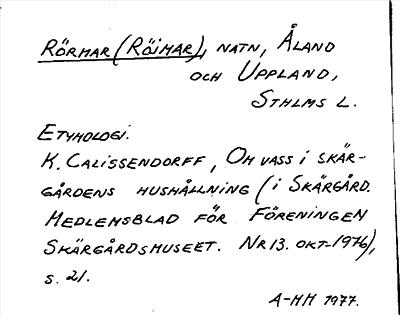 RÖRMAR (RÖJMAR), NATN, ÅLAND
OCH UPPLAND,
STHLMS L.
ETYMOLOGI.
K. CALISSENDORFF, OM VASS I SKÄR-
GÅRDENS HUSHÅLLNING (I SKÄRGÅRD.
MEDLEMSBLAD FÖR FÖRENINGEN
SKÄRGÅRDSMUSEET. NR 13. OKT-1976),
S. 21.
A-MH 1977.